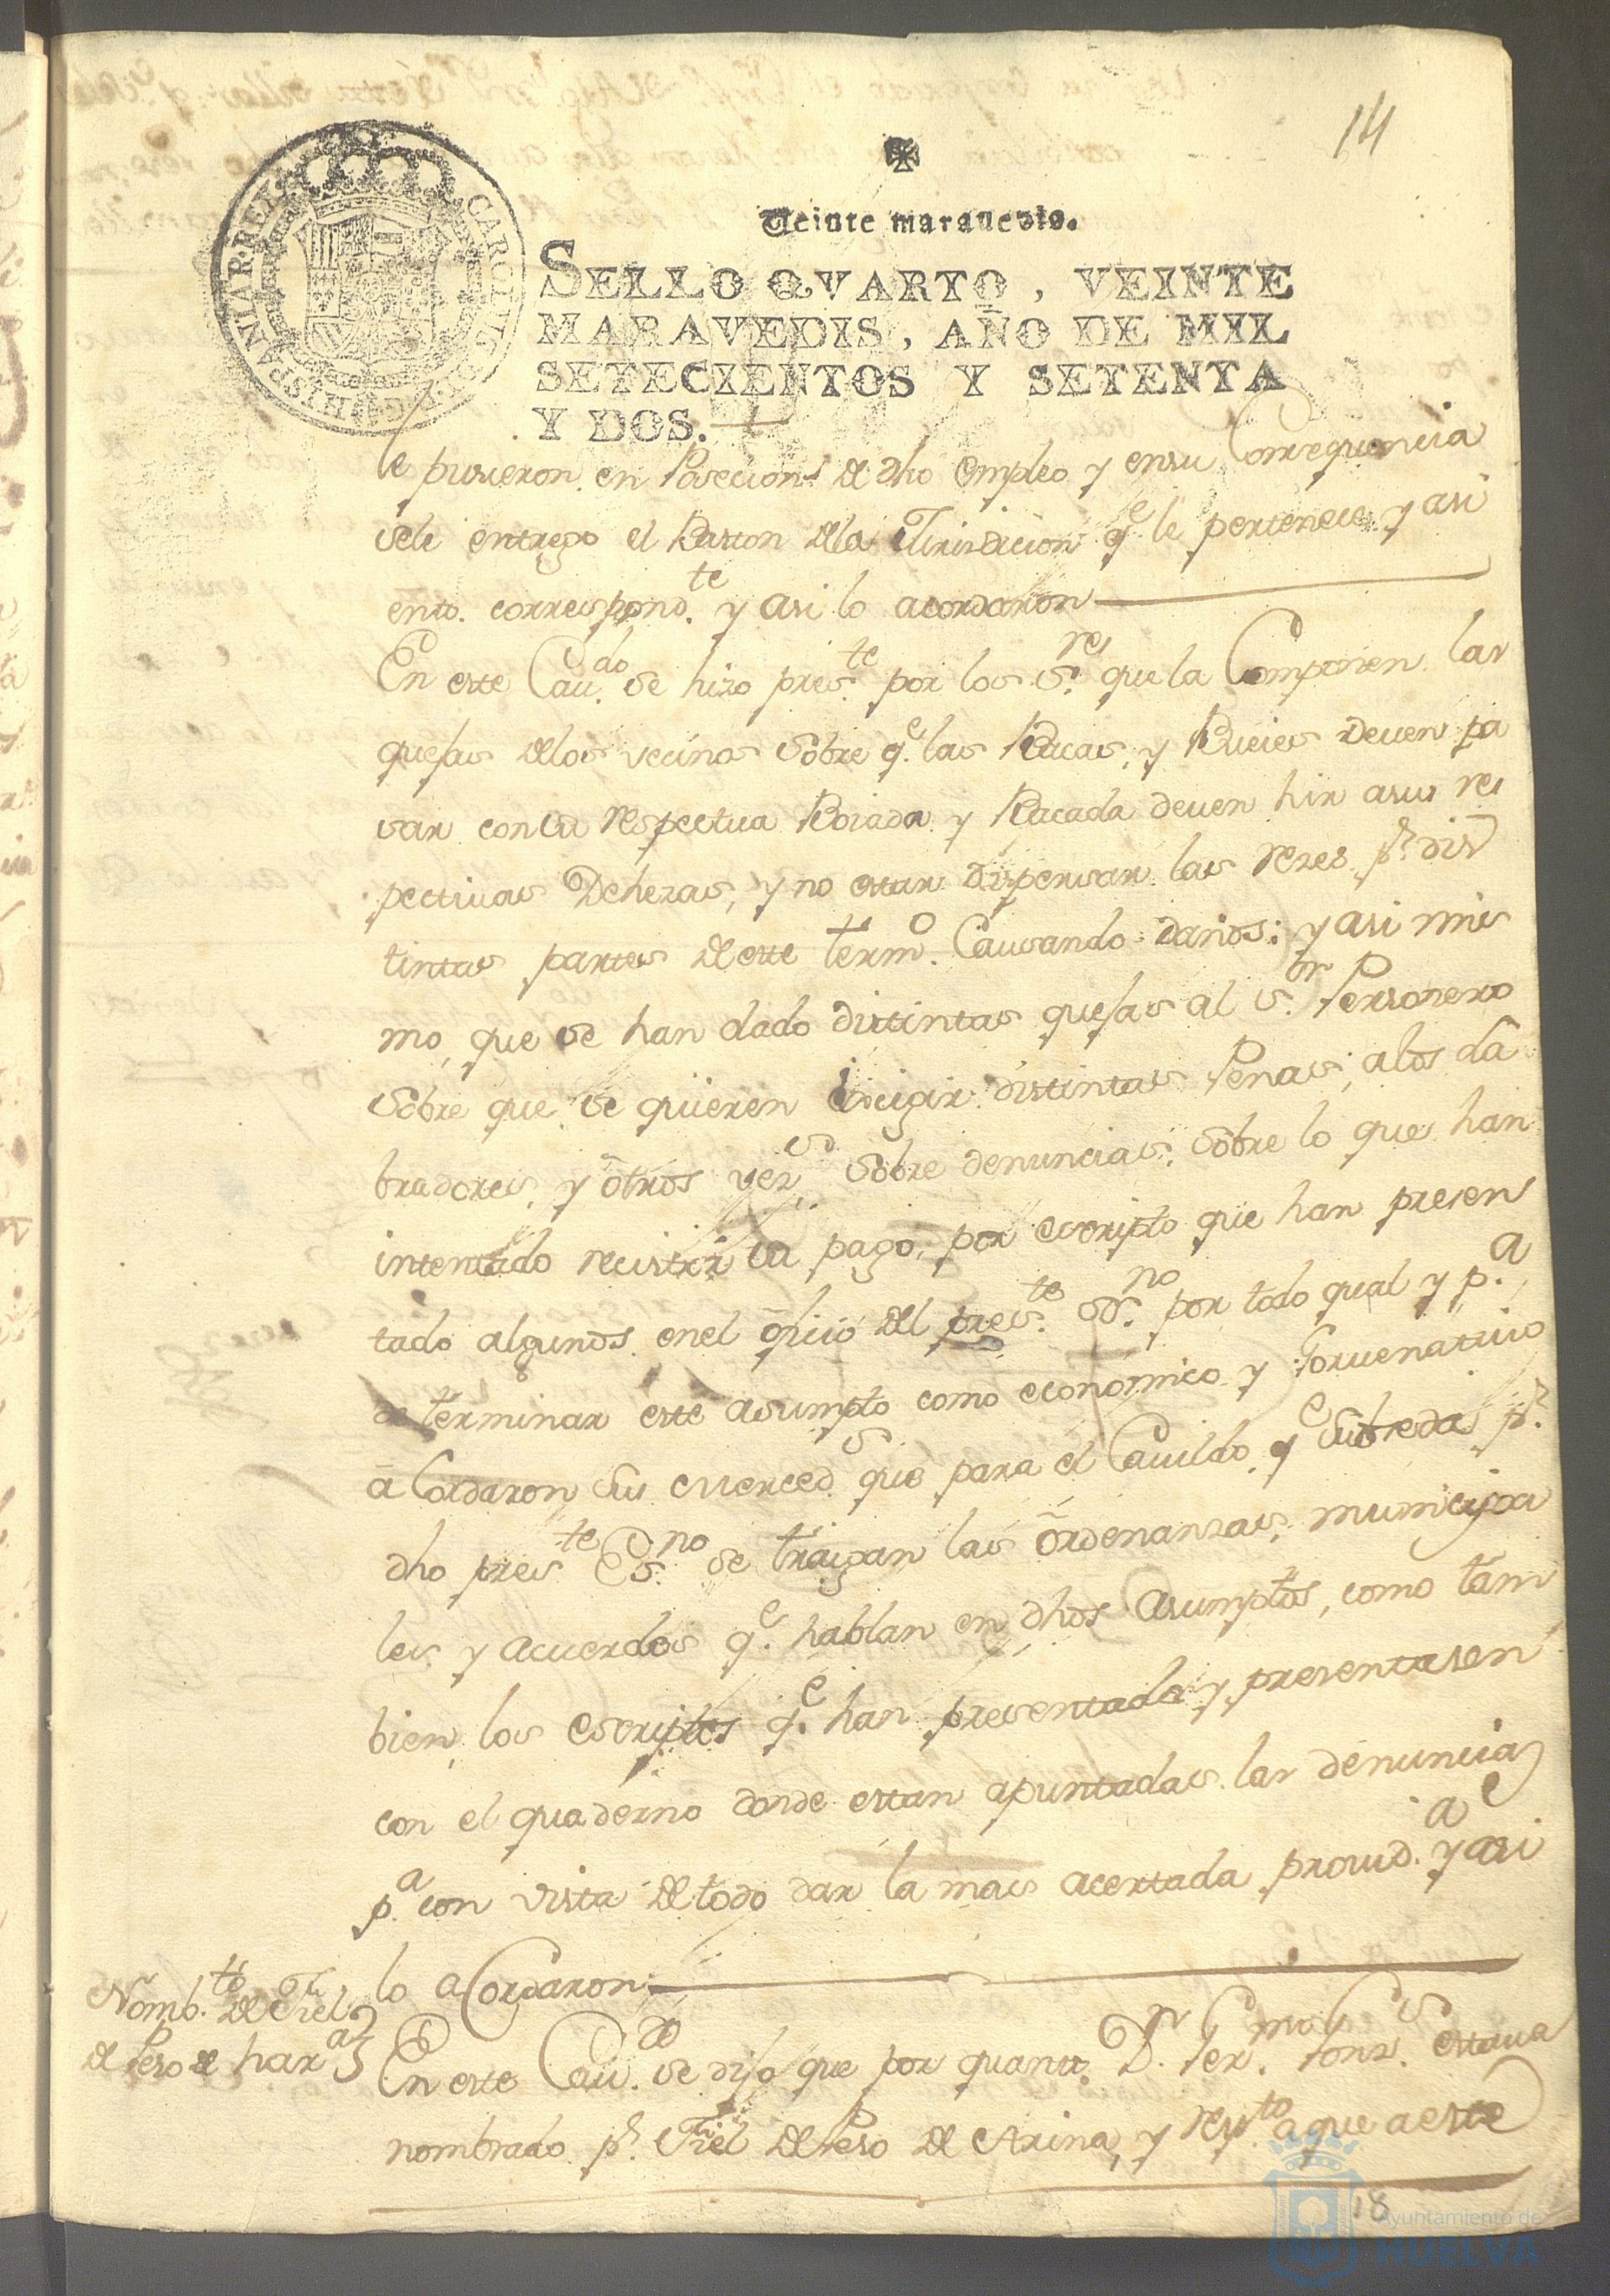 14
Veinte maravedis.
SELLO QVARTO, VEINTE
MARAVEDIS, AÑO DE MIL
SETECIENTOS Y SETENTA
Y DOS.
CAROLUS III D G HISPANIAR REX
le pusieron en Posecion de dho empleo y ensu Consequencia
sele entrego el Baston dela Jurisdicion q.e le pertenece y asi
ento. correspond.te y asi lo acordaron
En este Cau.do se hizo pres.te por los S.res que la Componen las
quejas delos vecinos sobre q.e las Bacas, y Bueies deven pa
sar con su respectiva Boiada y Bacada deven hir asus res
pectivas Dehezas, y no estar dispersar las rezes p.r dis
tintas partes de este term.o Causando daños: y asi mis
mo, que se han dado distintas quejas al S.or Personero
sobre que se quieren exigir distintas Penas, alos la
bradores, y otros vez.s sobre denuncias, sobre lo que han
intentado resistir su pago, por escripto que han presen
tado algunos enel oficio del pres.te es.no por todo qual y p.a
determinar este asumpto como economico y Governativo
aCordaron Sus merced.s que para el Cavildo q.e Subceda p.r
dho pres.te Es.no se traigan las ordenanzas, municipa
les y acuerdos q.e hablan en dhos Asumptos, como tam
bien, los escriptos q.e han presentado y presentasen
con el quaderno donde estan apuntadas las denuncias
p.a con vista de todo dar la mas acertada provid.a y asi
lo aCordaron
Nomb.to de Fiel
de Peso de har.a
En este Cau.do se dijo que por quanto D.n Fer.mo Gonz.s estava
nombrado p.r Fiel del Peso de Arina, y resp.to a que a este
18
Ayuntamiento de
HUELVA